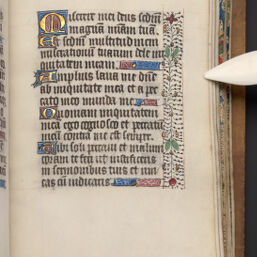 Miserere mei deus sedm
magnam miam tuam.
Et sedm multitudinem
miserationū tuarum dele ini
quitatem meam.
Amplius laua me ab
iniquitate mea et a pec
cato meo munda me
Quoniam iniquitatem
meam ego cognosco et peccatū
meum contra me est semper.
Tibi soli peccaui et malum
coram te feci ut iustificeris
in sermonibus tuis et uin
cas cū iudicaris